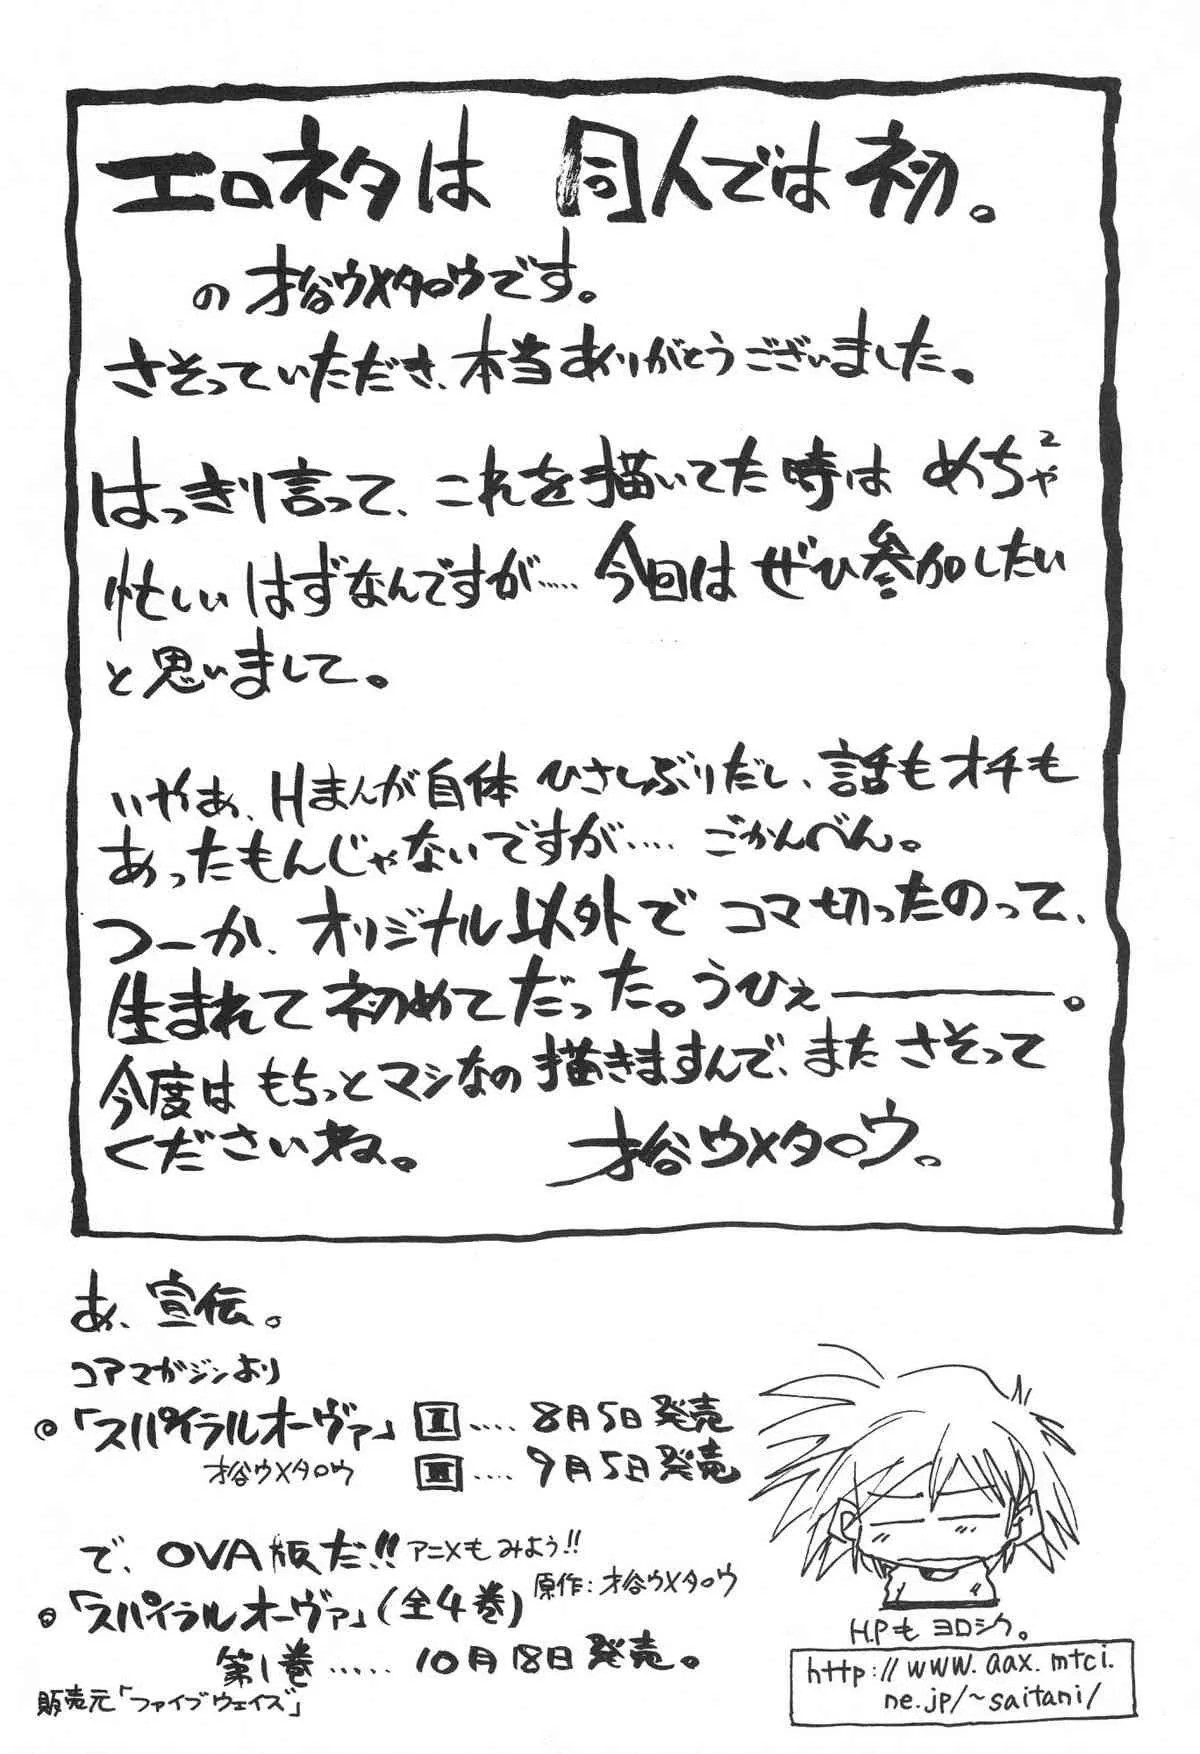 エロネタは 同人では初。
の 才谷ウメタロウです。
さそっていただき、本当ありがとうございました。
はっきり言って、これを描いてた時は めちゃ2
忙しい はずなんですが‥‥‥ 今回は ぜひ参加したい
と思いまして。
いやあ、Hまんが自体 ひさしぶりだし、話もオチも
あったもんじゃないですが‥‥ ごかんべん。
つーか、オリジナル以外で コマ切ったのって、
生まれて初めてだった。うひぇ―――。
今度は もちっとマシなの描きますんで、また さそって
くださいね。 才谷ウメタロウ。
あ、宣伝。
コアマガジンより
◎「スパイラルオーヴァ」 Ⅱ ‥‥ 8月5日発売
才谷ウメタロウ Ⅲ ‥‥ 9月5日発売
で、OVA版だ!! アニメも みよう!!
◎「スパイラルオーヴァ」(全4巻) 原作:才谷ウメタロウ
第1巻 ‥‥‥ 10月18日発売。
販売元「ファイブウェイズ」
H.Pも ヨロシク。
http://www.aax.mtci.
ne.jp/~saitani/